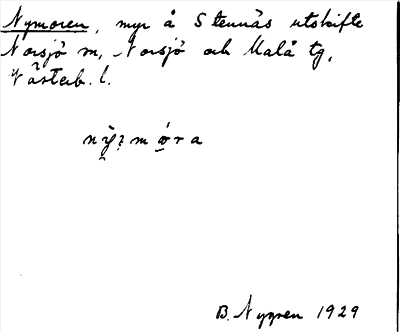 Nymoren, myr å Stennäs utskifte
Norsjö sn, Norsjö och Malå tg,
Västerb. l.
B. Nygren 1929